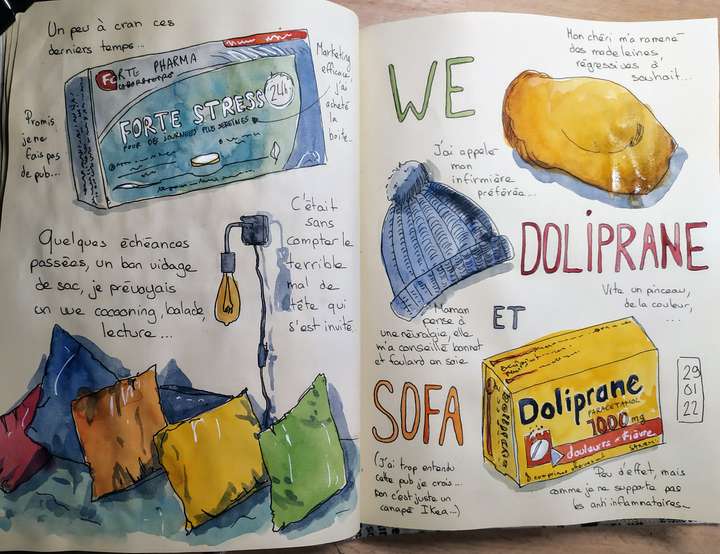 Un peu à cran ces
derniers temps...
FORTE PHARMA
LABORATOIRES
FORTE STRESS
24h
POUR DES JOURNÉES PLUS SEREINES
Marketing
efficace
j'ai
acheté
la
boîte...
Promis
je ne
fais pas
de pub...
C'était
sans
compter le
terrible
mal de
tête qui
s'est invité.
Quelques échéances
passées, un bon vidage
de sac, je prévoyais
un we cocooning, balade,
lecture...
WE
Mon chéri m'a ramené
des madeleines
régressives à
souhait...
J'ai appelé
mon
infirmière
préférée...
DOLIPRANE
Maman
pense à
une névralgie, elle
m'a conseillé bonnet
et foulard en soie
ET
Vite un pinceau,
de la couleur,
....
SOFA
Doliprane
PARACÉTAMOL
1000 mg
douleurs - Fièvre
8 comprimés
29
01
22
(J'ai trop entendu
cette pub je crois...
bon c'est juste un
canapé Ikea...)
Peu d'effet, mais
comme je ne supporte pas
les anti inflammatoires...